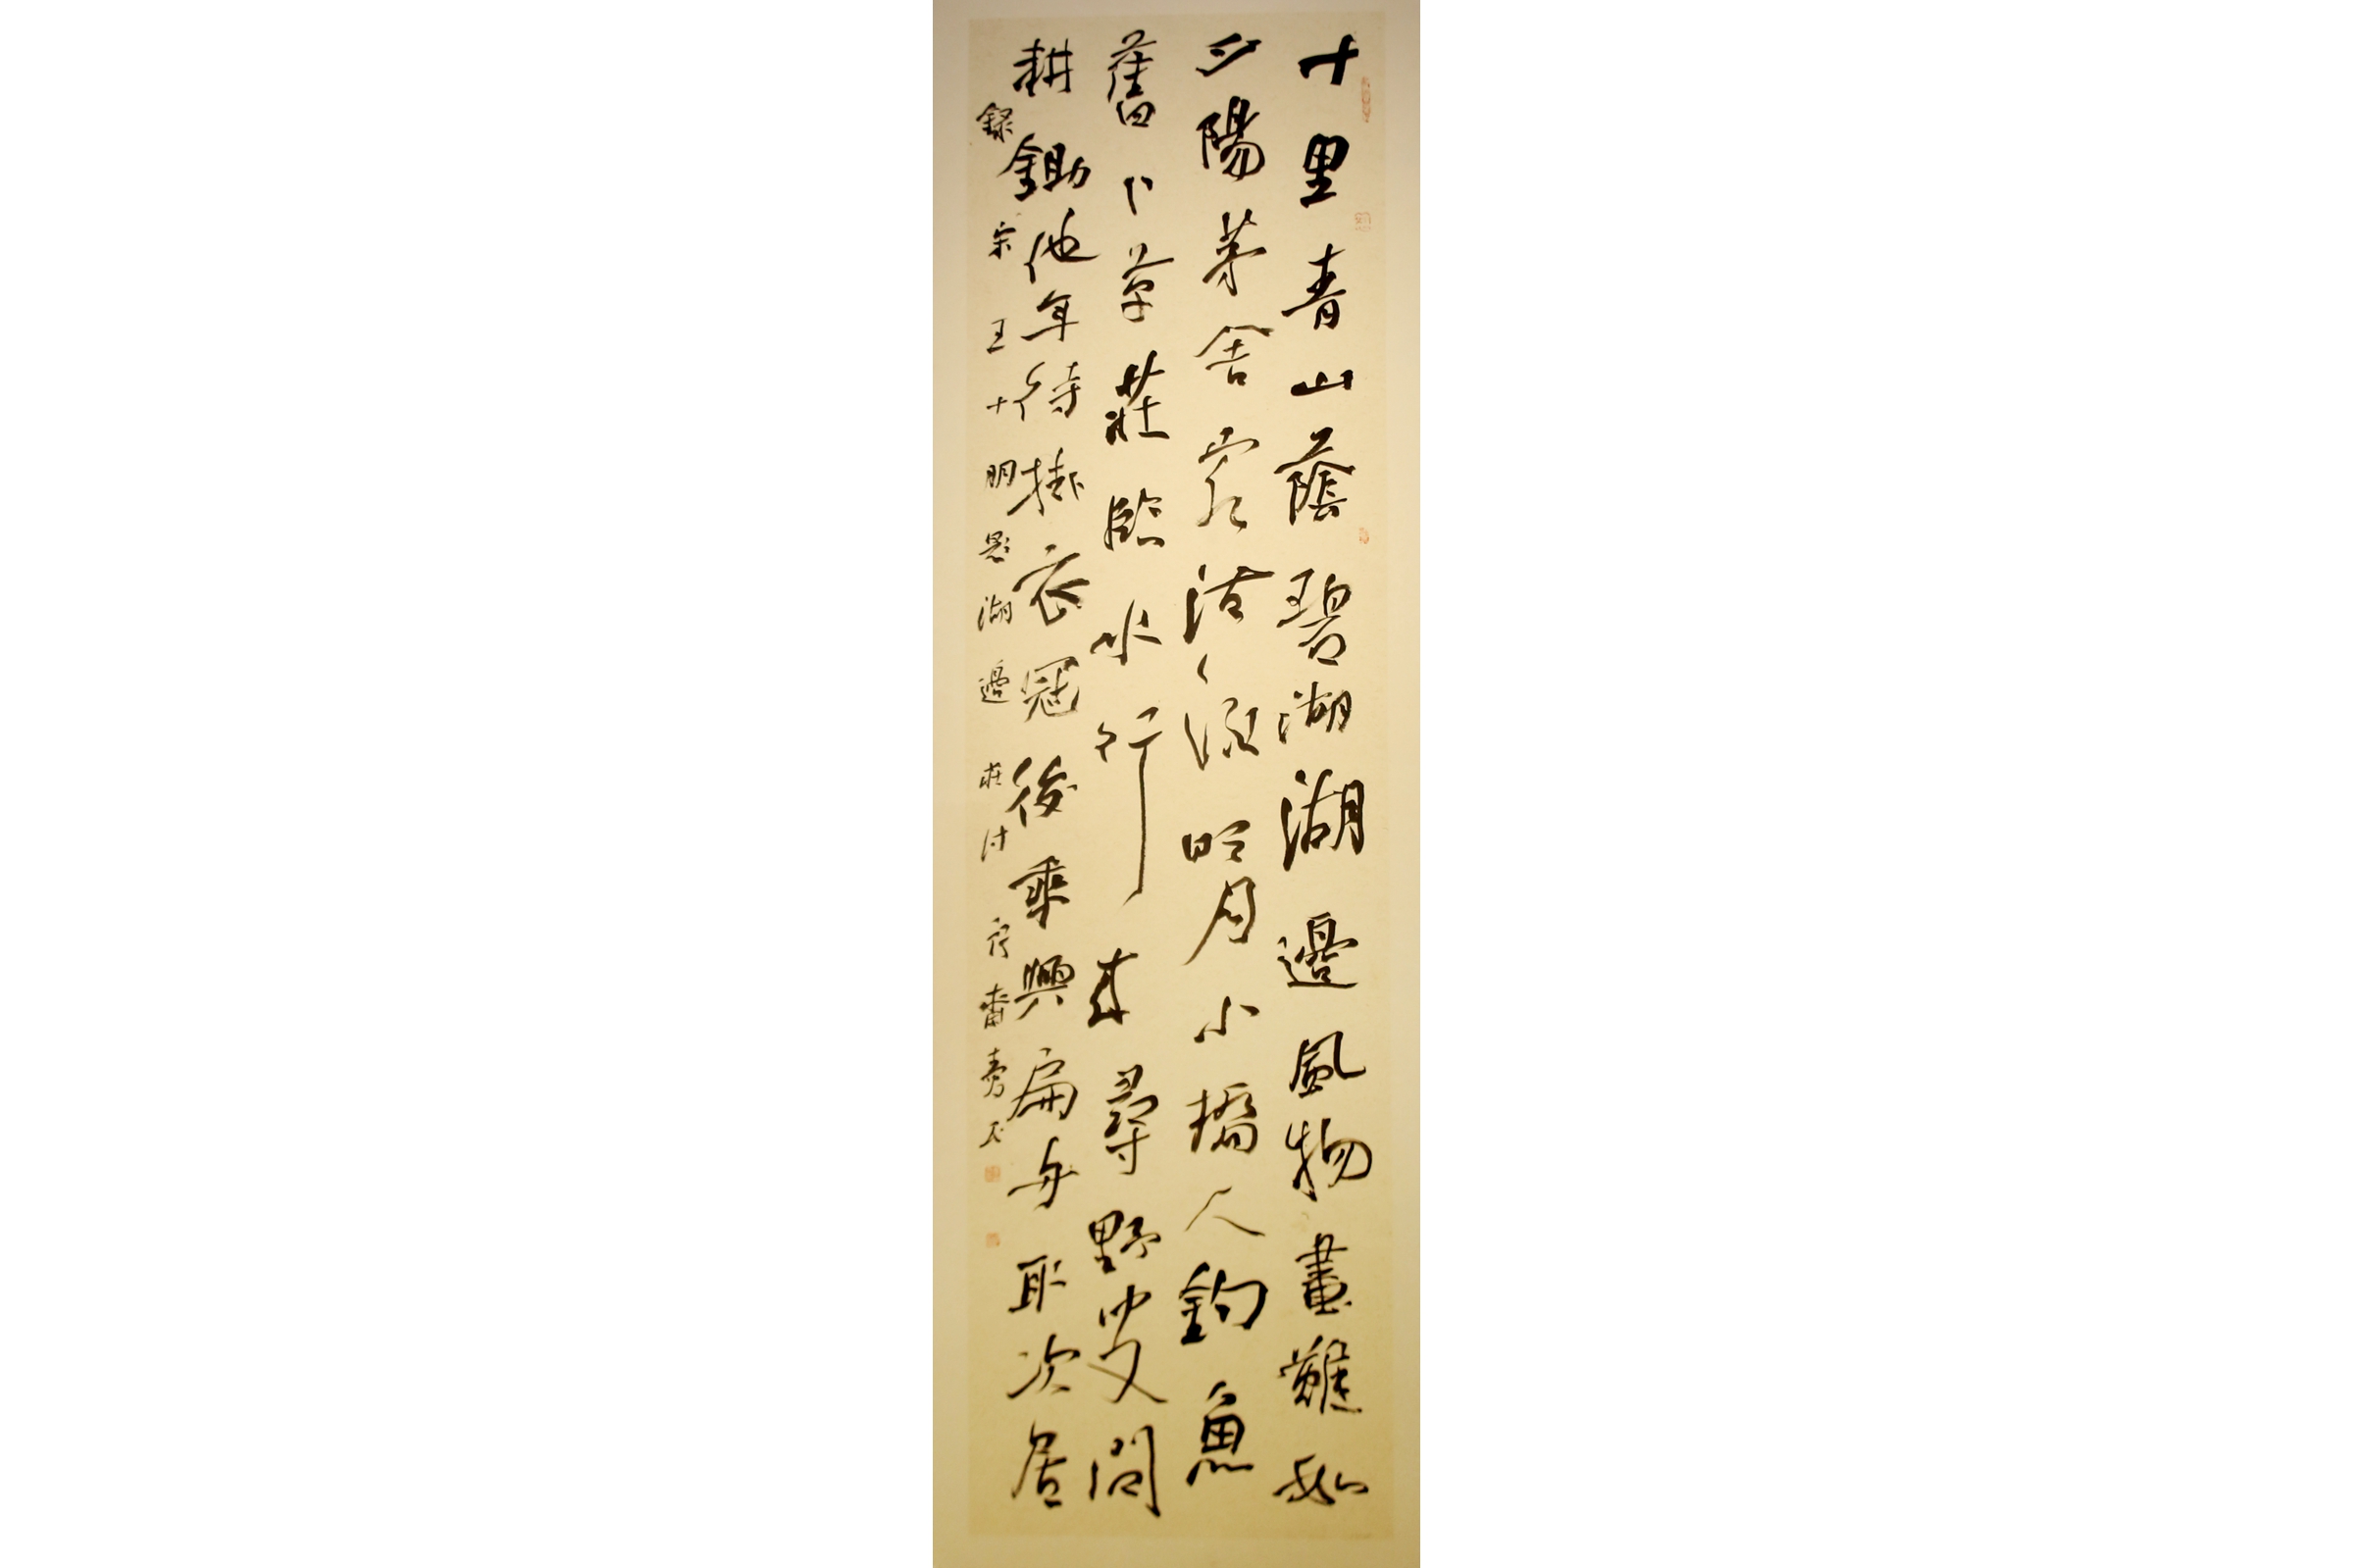 十里青山蔭碧湖湖邊風物畫難如
夕陽茅舍客沽酒明月小橋人釣魚
舊卜草莊臨水竹來尋野叟問
耕鋤他年待掛衣冠後乘興扁舟取次居
錄宋王十朋題湖邊莊詩